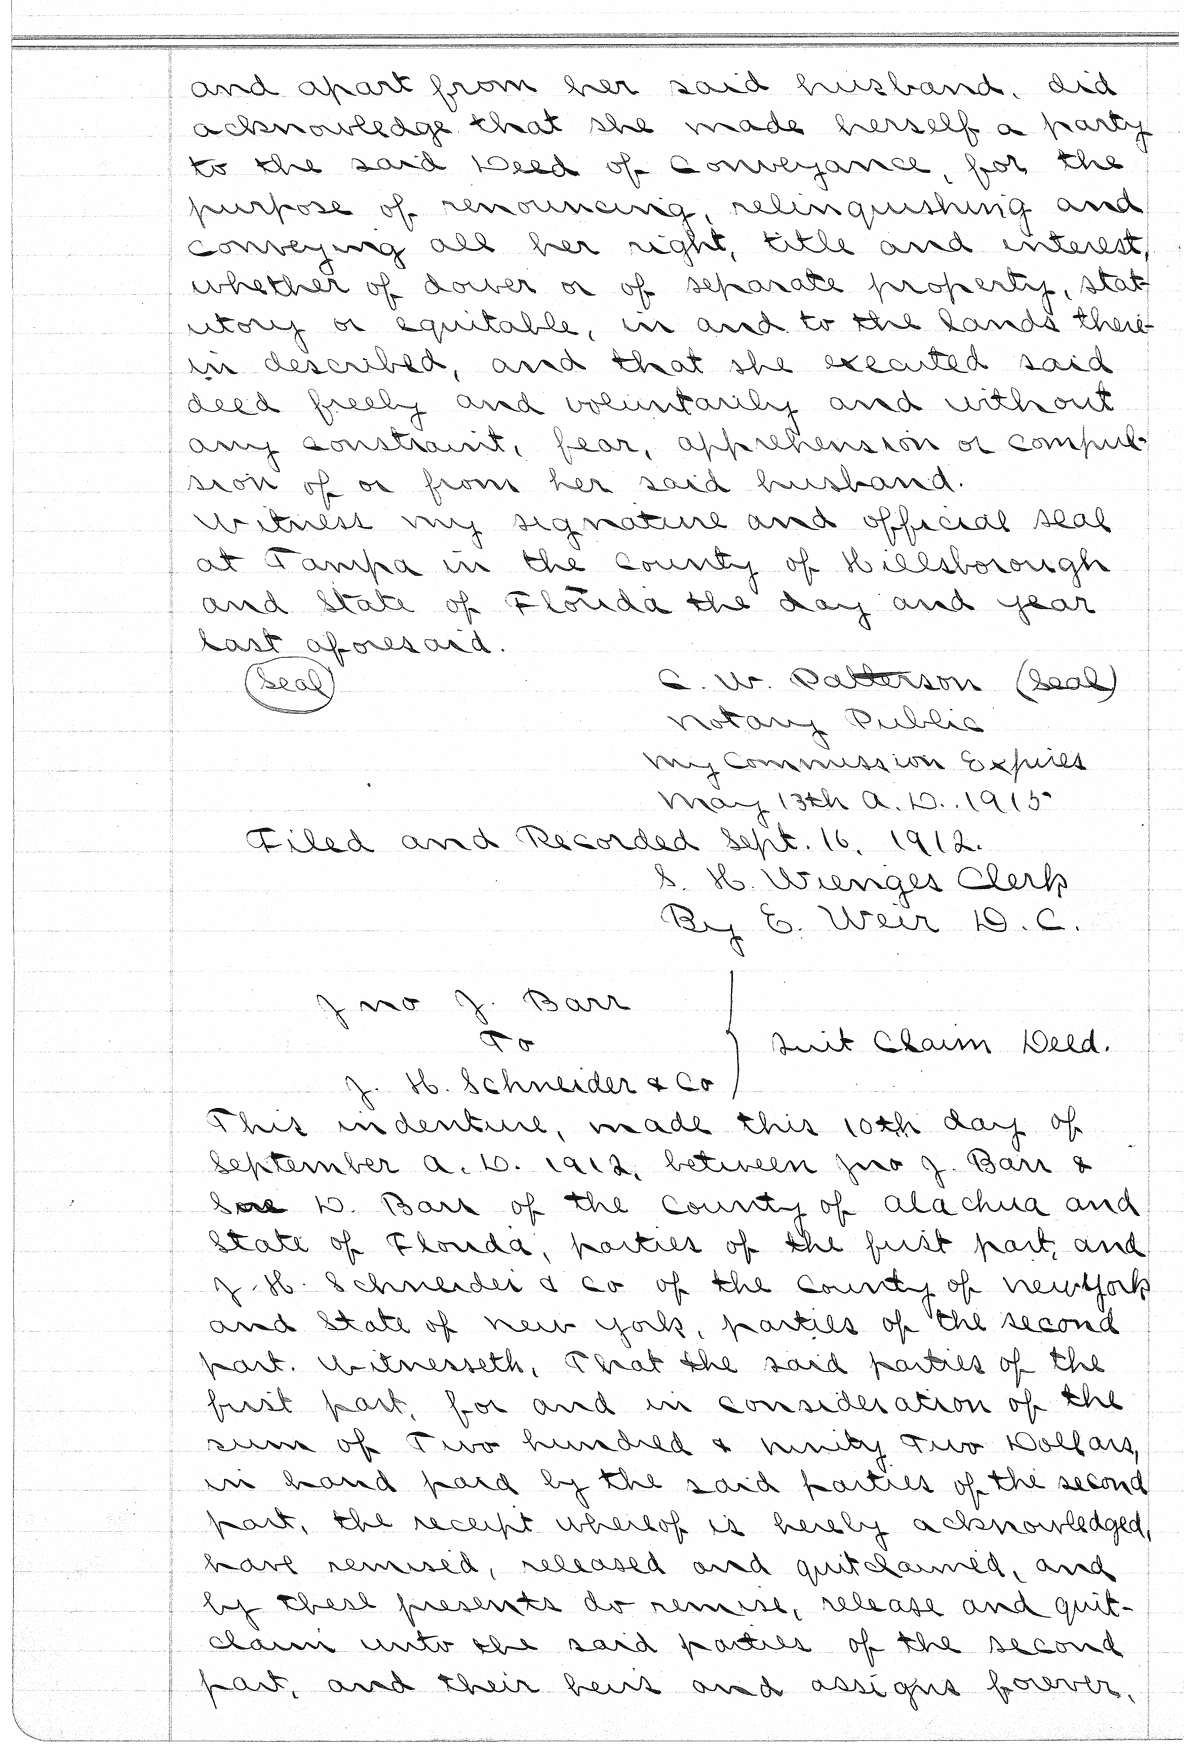 and apart from her said husband, did
acknowledge that she made herself a party
to the said Deed of Conveyance, for the
purpose of renouncing, relinquishing and
conveying all her right, title and interest,
whether of dower or of separate property, stat-
utory or equitable, in and to the lands there-
in described, and that she executed said
deed freely and voluntarily and without
any constraint, fear, apprehension or compul-
sion of or from her said husband.
Witness my signature and official seal
at Tampa in the County of Hillsborough
and State of Florida the day and year
last aforesaid.
(Seal) C. W. Patterson (Seal)
Notary Public
My Commission Expires
May 13th A.D. 1915
Filed and Recorded Sept. 16, 1912.
S. H. Wienges Clerk
By E. Weir D.C.
Jno J. Barr
To
Quit Claim Deed.
J. H. Schneider & Co
This indenture, made this 10th day of
September A.D. 1912, between Jno J. Barr &
D. Barr of the County of Alachua and
State of Florida, parties of the first part, and
J. H. Schneider & Co of the County of New York
and State of New York, parties of the second
part. Witnesseth, That the said parties of the
first part, for and in consideration of the
sum of Two hundred & ninity Two Dollars,
in hand paid by the said parties of the second
part, the receipt whereof is hereby acknowledged,
have remised, released and quitclaimed, and
by these presents do remise, release and quit-
claim unto the said parties of the second
part, and their heirs and assigns forever,